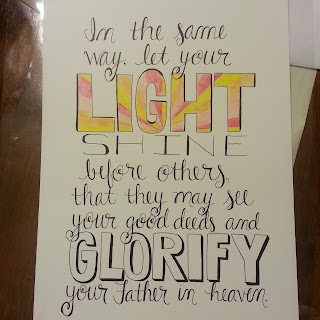 In the same
way, let your
LIGHT
SHINE
before others,
that they may see
your good deeds and
GLORIFY
your Father in heaven.